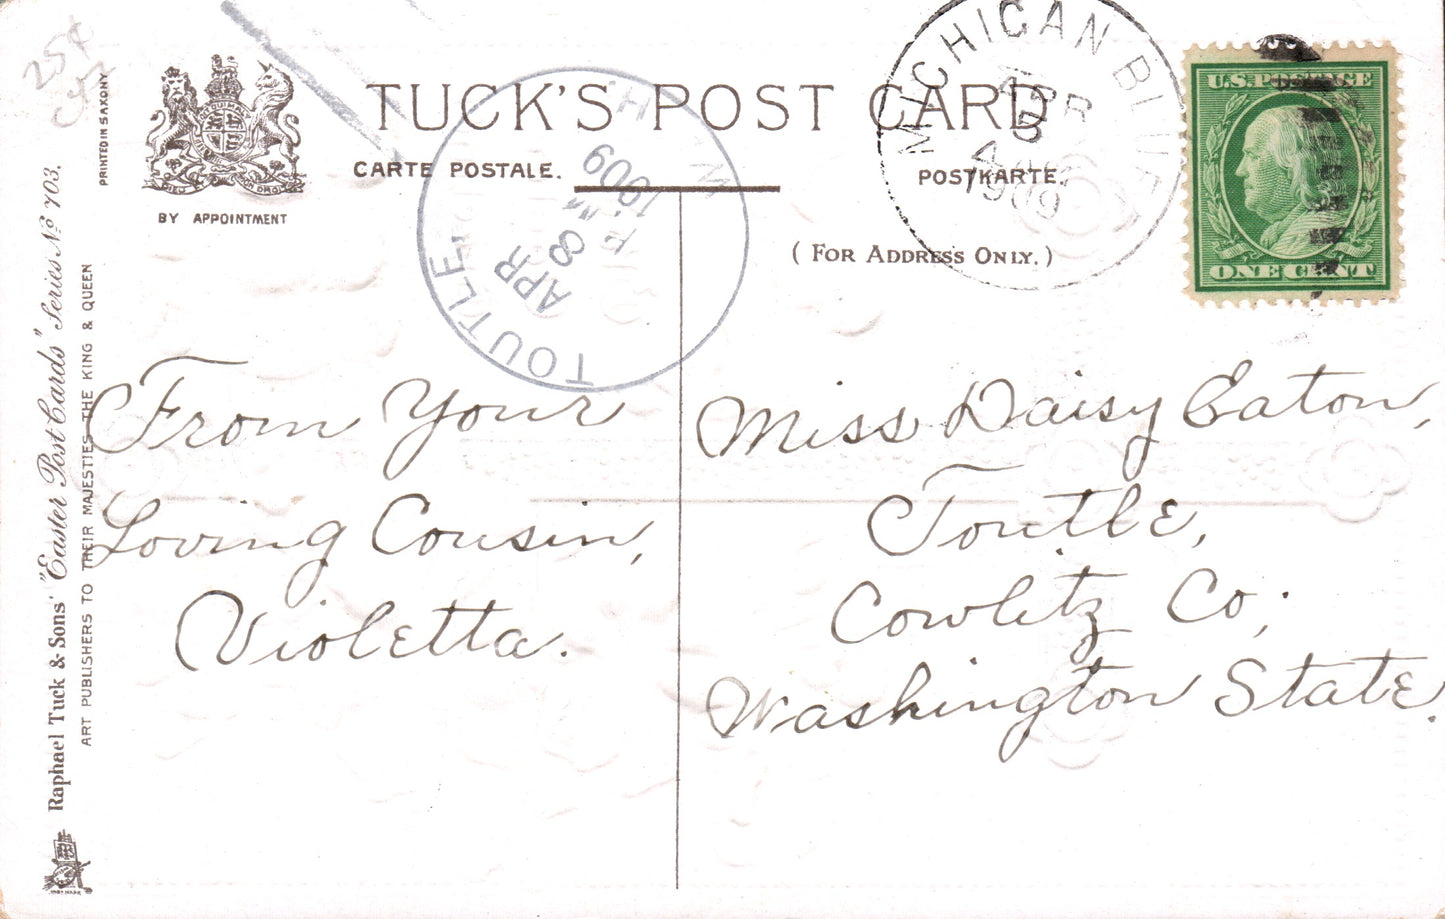 25¢
PRINTED IN SAXONY
BY APPOINTMENT
TUCK'S POST CARD
CARTE POSTALE.
POSTKARTE.
(FOR ADDRESS ONLY.)
TOUTLE,
APR
8
1909
MICHIGAN BL
APR
5
1909
U.S. POSTAGE
ONE CENT
From Your
Loving Cousin,
Violetta.
Miss Daisy Eaton,
Toutle,
Cowlitz Co;
Washington State.
Raphael Tuck & Sons' "Easter Post Cards" Series No 703.
ART PUBLISHERS TO THEIR MAJESTIES THE KING & QUEEN